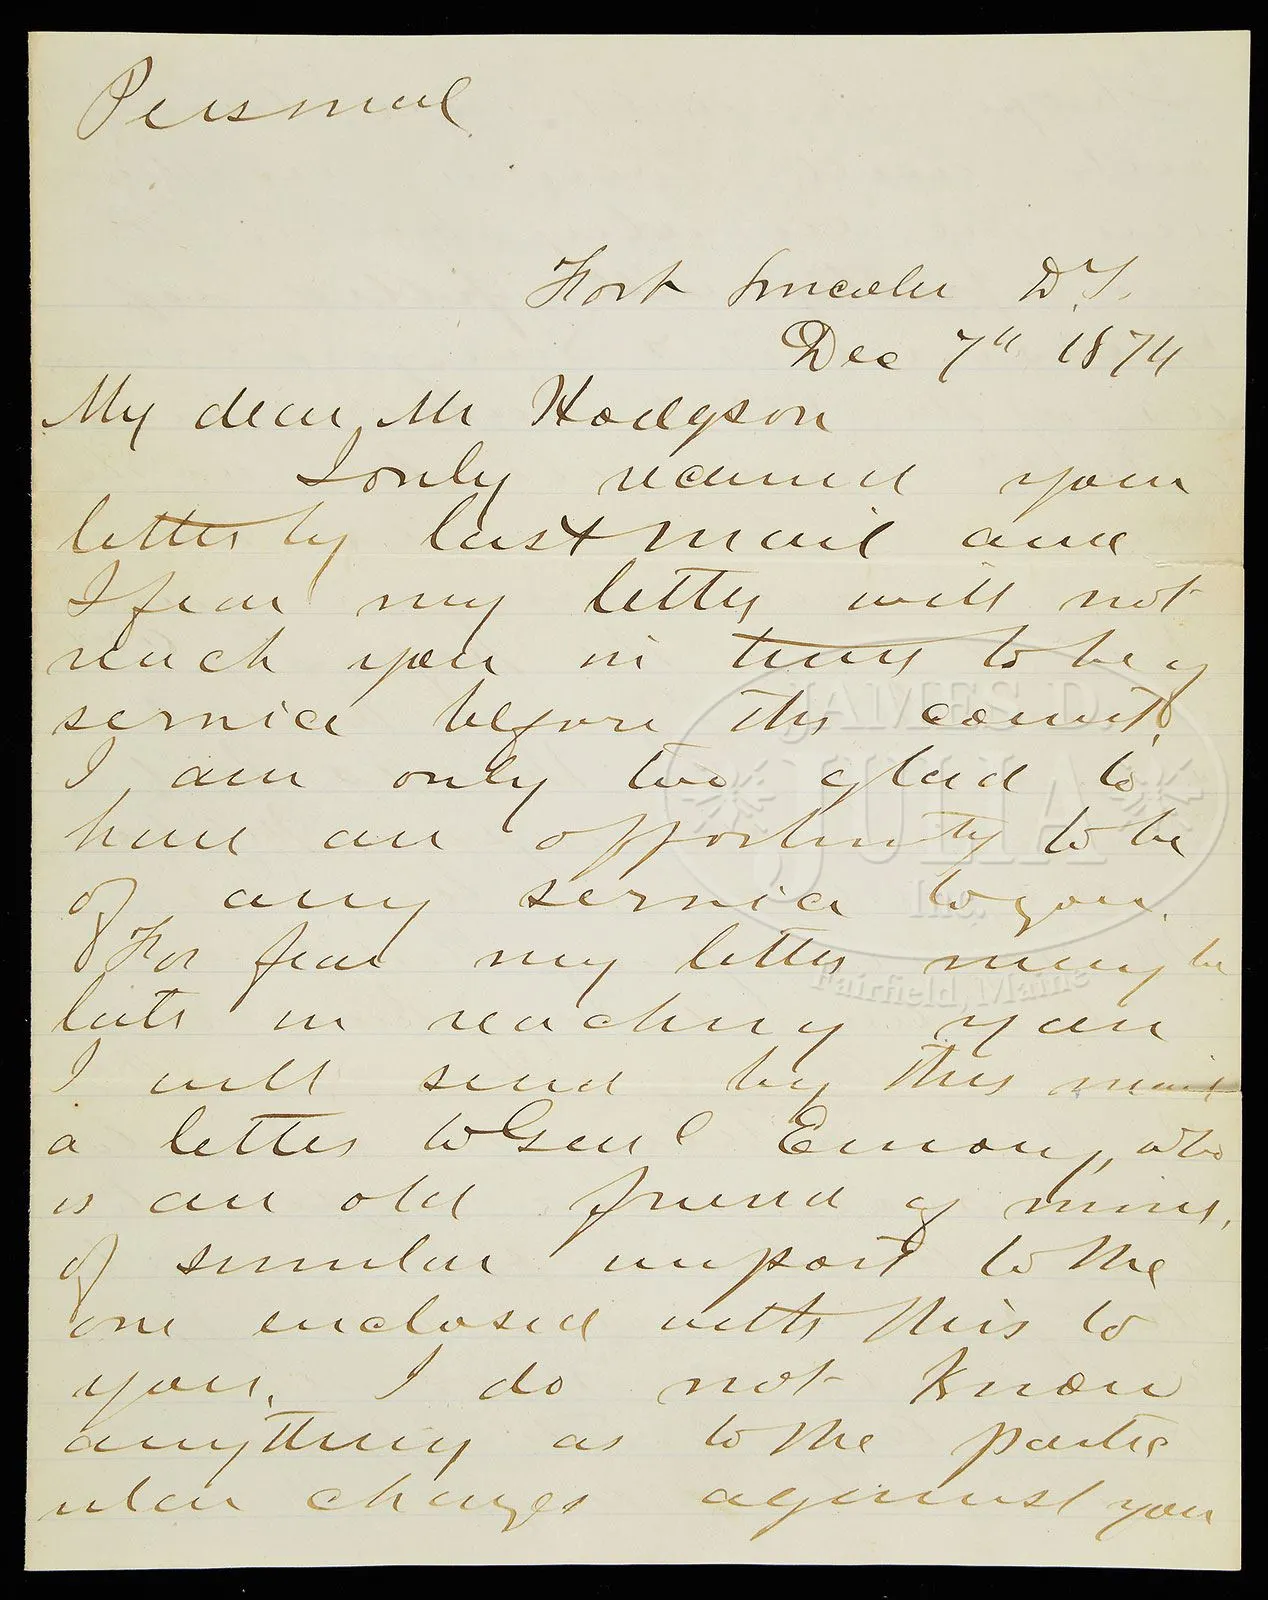 Personal
Fort Lincoln D.T.
Dec 7th 1874
My dear Mr Hodgson
I only received your
letter by last mail and
I fear my letter will not
reach you in time to be of
service before the court.
I am only too glad to
have an opportunity to be
of any service to you.
For fear my letter may be
late in reaching you
I will send by this mail
a letter to Genl Emory, who
is an old friend of mine,
of similar import to the
one enclosed with this to
you. I do not know
anything as to the partic
ular charges against you
JAMES D.
JULIA
Inc.
Fairfield, Maine